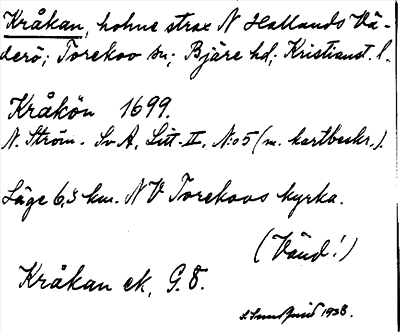 Kråkan, holme strax N Hallands Vä-
derö; Torekov sn; Bjäre hd; Kristianst. l.
Kråkön 1699.
N. Ström. Sv A, Litt. II, No 5 (m. kartbeskr.).
Läge 6,5 km. NV Torekovs kyrka.
(Vänd!)
Kråkan ek, G. 8.
1938.